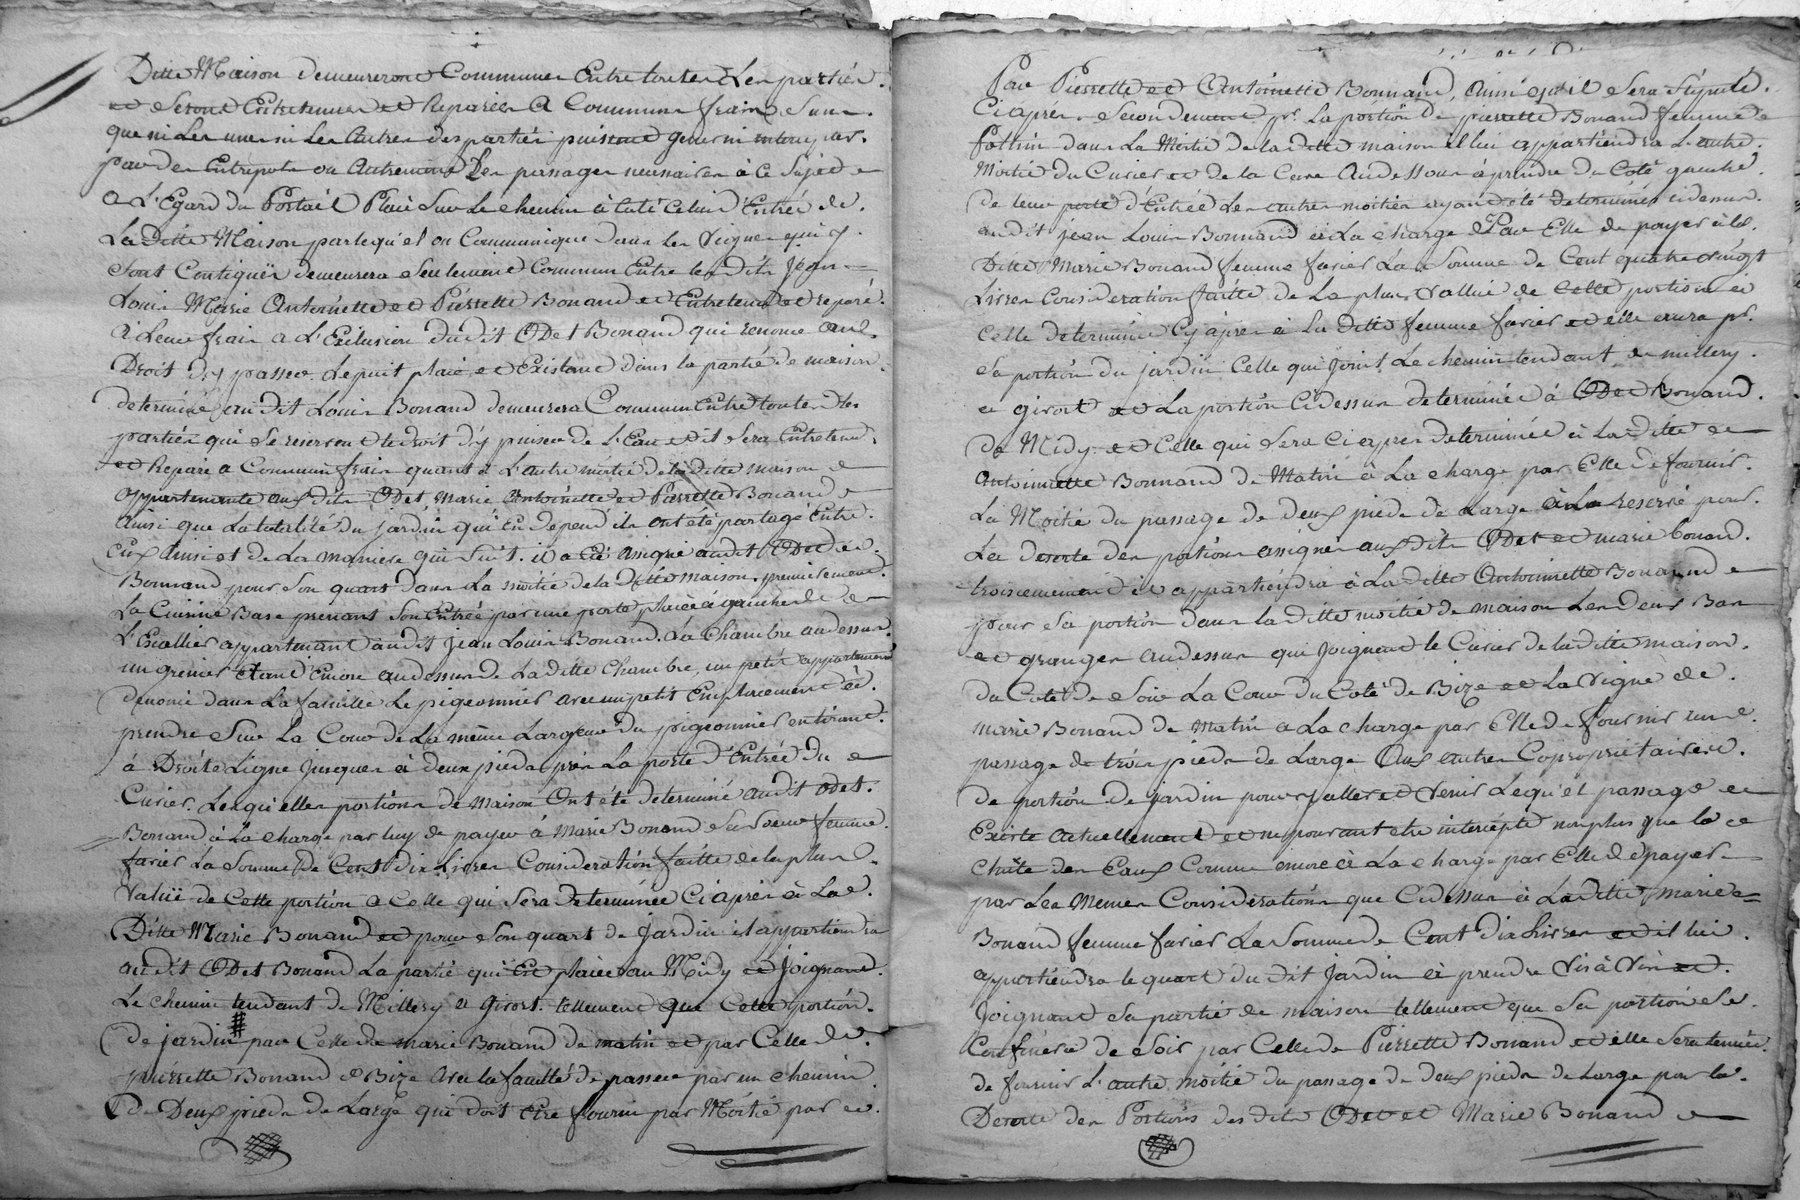 Ditte Maison demeureront Communes Entre toutes Les parties.
et Seront Entretenues et Reparées a Communs fraix Sans
que ni Les unes ni Les Autres des parties puissent gener ni
par des Entrepots ou Autrement Les passages necessaires à ce Sujet
a L'Egard du Portail Placé Sur Le chemin à Coté Celui d'Entrée de
La ditte Maison par lequ'el on Communique dans les Vignes qui y
Sont Contiguës demeurera Seulement Commun Entre les dits Jean
Louis Marie Antoinette et Pierrette Bonand et Entretenu et reparé
à Leur fraix a L'Exclusion dudit Odet Bonand qui renonce au
Droit d'y passer. Le puit placé et Existant dans la partie de maison
determiné au dit Louis Bonand demeurera Commun Entre toutes les
parties qui Se reservent le droit d'y puiser de L'Eau et il Sera Entretenu
et Reparé a Communs fraix quant à L'autre moitié de la ditte maison
appartenante aux dits Odet, Marie Antoinette et Pierrette Bonand
Ainsi que La totalité du jardin qui En depend ils ont été partagé Entre
Eux Ainsi et de La maniere qui Suit. il a Eté Assigné audit Odet
Bonnand pour Son quart dans La moitié de la Ditte maison. premierement
La Cuisine Base prenant Son Entrée par une porte placée à gauche de
L'Escallier appartenant audit Jean Louis Bonand. La Chambre audessus
un grenier Etant Encore audessus de La ditte Chambre, un petit appartement
denomé dans La famille Le pigeonnier avec un petit Emplacement à
prendre Sur La Cour de La même Largeur du pigeonnier en tirant
à Droite Ligne Jusques à deux pieds près La porte d'Entrée du
Cuvier. Lesqu'elles portions de Maison Ont été determiné audit Odet.
Bonand à La Charge par luy de payer à Marie Bonand Sa Soeur femme
favier La Somme De Cent dix Livres Consideration faitte de la plus
Value de Cette portion a Celle qui Sera determinée Ci après à La
Ditte Marie Bonand et pour Son quart de Jardin il appartiendra
audit Odet Bonand La partie qui Est placée au Midy et Joignant
Le chemin tendant de Millery a Givort. tellement que Cette portion
de jardin par Celle de marie Bonand de matin et par Celle de
pierrette Bonand de Bize Avec la faculté de passer par un chemin
de Deux pieds de Large qui doit Etre fourni par Moitié par
Par Pierrette et Antoinette Bonnand, Ainsi qu'il Sera Stipulé
Ci après. Secondement pr. La portion de pierrette Bonand femme
dans La Moitié de la ditte maison il lui appartiendra L'autre
Moitié du Cuvier et de la Cave Audessous à prendre du Coté gauche
de leur porte d'Entrée Les autres moitiés ayant été determinés cidessus
audit jean Louis Bonnand à La charge Par Elle de payer à la
Ditte Marie Bonand femme favier La Somme de Cent quatre vingt
Livres Consideration faitte de La plus Vallue de Cette portion a
Celle determinée Cy après à La ditte femme favier et elle aura pr.
Sa portion du jardin Celle qui joint Le chemin tendant de millery
a givort et La portion Cidessus determinée à Odet Bonand
de Midy et Celle qui Sera ci après determinée à La ditte
Antoinette Bonnand de Matin à La charge par Elle de fournir
La Moitié du passage de deux pieds de Large reservé pour
La deserte des portions assignées aux dits Odet et marie bonand.
troisiemement il appartiendra à La ditte Antoinette Bonand
pour Sa portion dans la ditte moitié de maison Les deux Bas
et granges audessus qui Joignent le Cuvier de la ditte maison.
du Coté de Soir La Cour du Coté de Bize et La Vigne de
marie Bonand de Matin a La charge par Elle de fournir un
passage de trois pieds de Large Aux autres Coproprietaires
de portion de jardin pour y aller et Venir Lequ'el passage
Existe Actuellement et ne pourant etre intercepté non plus que la
Chûte des Eaux Comme encore à La charge par Elle de payer
par Les Memes Considerations que Cidessus à La ditte Marie
Bonand femme favier La Somme de Cent dix Livres et il lui
appartiendra le quart du dit Jardin à prendre Vis à Vis et
Joignant Sa partie de maison tellement que Sa portion Se
Confinera de Soir par Celle de Pierrette Bonand et elle Sera tenüe
de fournir L'autre moitié du passage de deux pieds de Large par la
Deserte des Portions des dits Odet et Marie Bonand